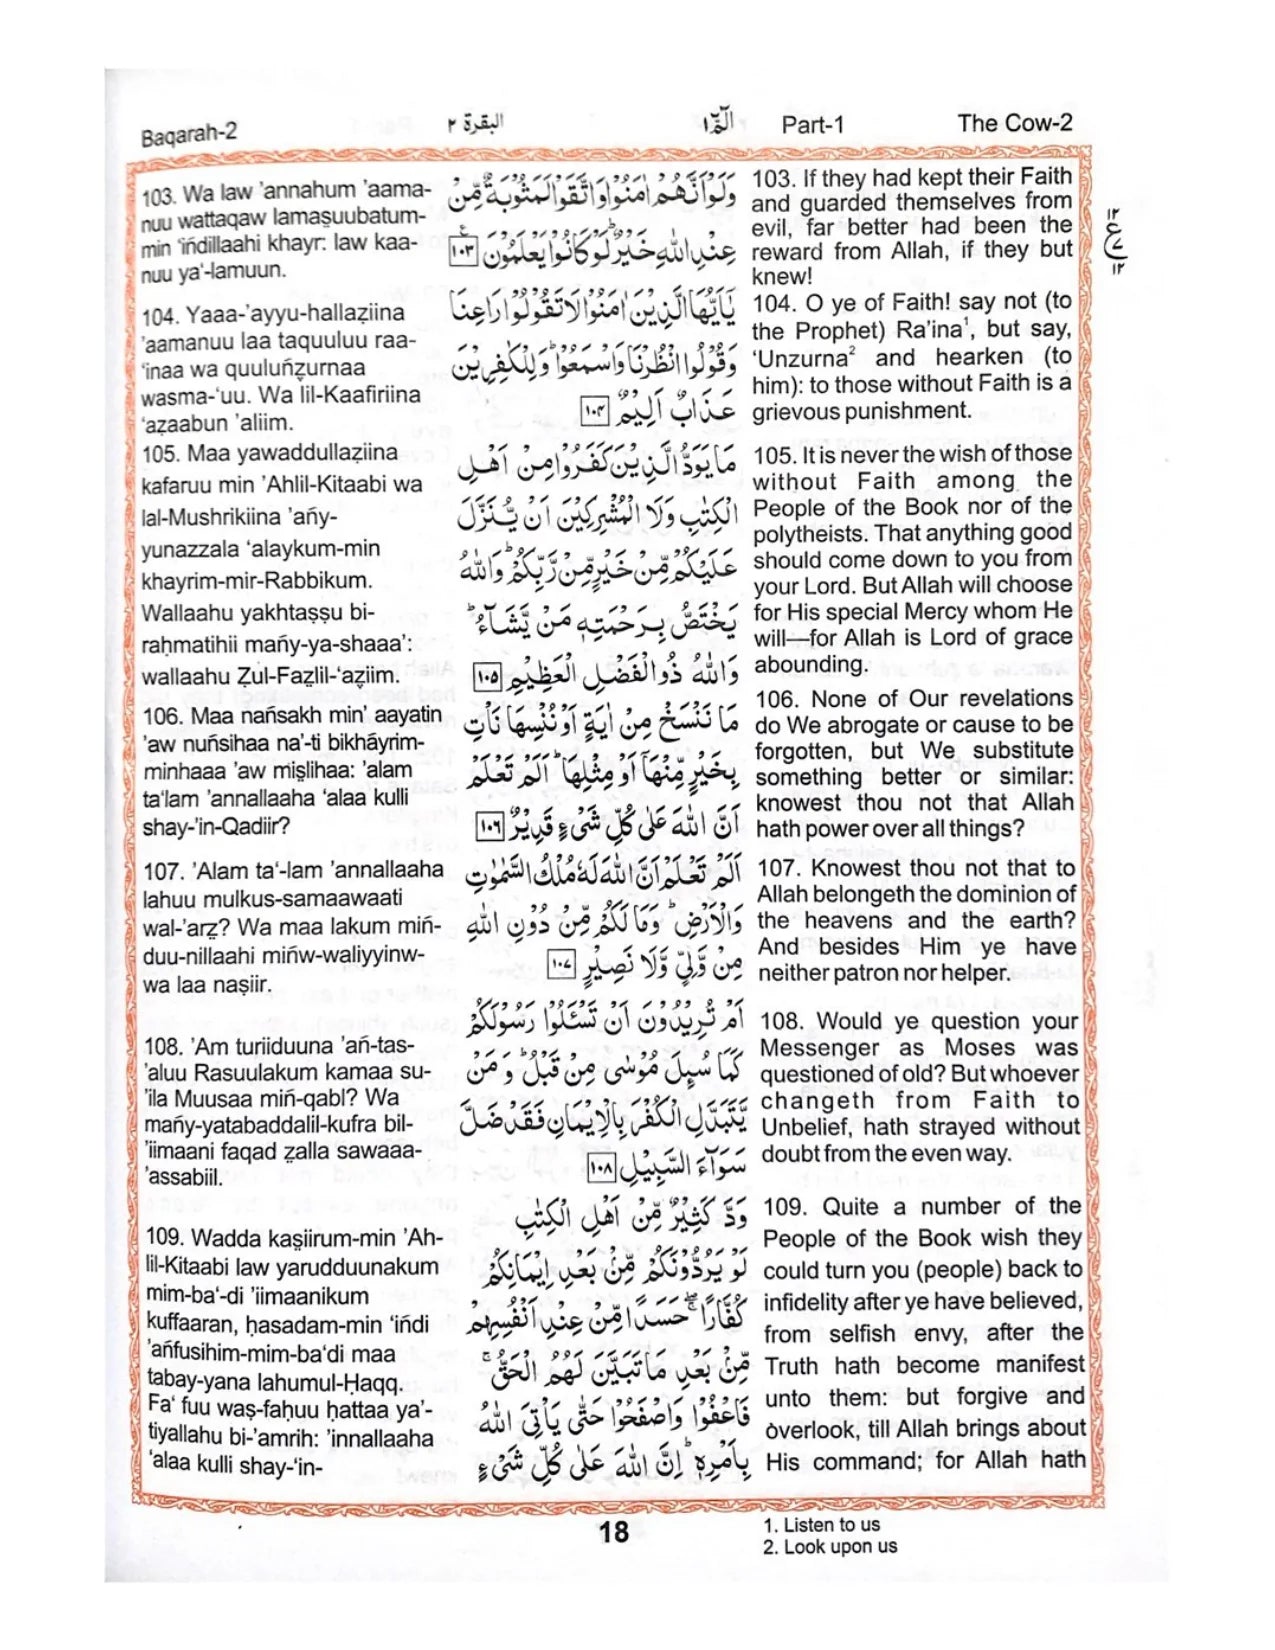 Baqarah-2
البقرة ٢
الٓمّٓ ١
Part-1
The Cow-2
103. Wa law ’annahum ’aama-
nuu wattaqaw lamaṣuubatum-
min ‘iñdillaahi khayr: law kaa-
nuu ya‘-lamuun.
104. Yaaa-’ayyu-hallaẓiina
’aamanuu laa taquuluu raa-
‘inaa wa quuluñẓurnaa
wasma-‘uu. Wa lil-Kaafiriina
‘aẓaabun ’aliim.
105. Maa yawaddullaẓiina
kafaruu min ’Ahlil-Kitaabi wa
lal-Mushrikiina ’añy-
yunazzala ‘alaykum-min
khayrim-mir-Rabbikum.
Wallaahu yakhtaṣṣu bi-
raḥmatihii mañy-ya-shaaa’:
wallaahu Ẓul-Faẓlil-‘aẓiim.
106. Maa nañsakh min’ aayatin
’aw nuñsihaa na’-ti bikháyrim-
minhaaa ’aw miṣlihaa: ’alam
ta‘lam ’annallaaha ‘alaa kulli
shay-’in-Qadiir?
107. ’Alam ta‘-lam ’annallaaha
lahuu mulkus-samaawaati
wal-’arẓ? Wa maa lakum miñ-
duu-nillaahi miñw-waliyyinw-
wa laa naṣiir.
108. ’Am turiiduuna ’añ-tas-
’aluu Rasuulakum kamaa su-
’ila Muusaa miñ-qabl? Wa
mañy-yatabaddalil-kufra bil-
’iimaani faqad ẓalla sawaaa-
’assabiil.
109. Wadda kaṣiirum-min ’Ah-
lil-Kitaabi law yarudduunakum
mim-ba‘-di ’iimaanikum
kuffaaran, ḥasadam-min ‘iñdi
’añfusihim-mim-ba‘di maa
tabay-yana lahumul-Ḥaqq.
Fa‘ fuu waṣ-faḥuu ḥattaa ya’-
tiyallahu bi-’amrih: ’innallaaha
‘alaa kulli shay-‘in-
وَلَوْ اَنَّهُمْ اٰمَنُوْا وَاتَّقَوْا لَمَثُوْبَةٌ مِّنْ
عِنْدِ اللّٰهِ خَيْرٌ ؕ لَوْ كَانُوْا يَعْلَمُوْنَ ١٠٣ ع
يٰۤاَيُّهَا الَّذِيْنَ اٰمَنُوْا لَا تَقُوْلُوْا رَاعِنَا
وَقُوْلُوا انْظُرْنَا وَاسْمَعُوْا ؕ وَلِلْكٰفِرِيْنَ
عَذَابٌ اَلِيْمٌ ١٠٤
مَا يَوَدُّ الَّذِيْنَ كَفَرُوْا مِنْ اَهْلِ
الْكِتٰبِ وَلَا الْمُشْرِكِيْنَ اَنْ يُّنَزَّلَ
عَلَيْكُمْ مِّنْ خَيْرٍ مِّنْ رَّبِّكُمْ ؕ وَاللّٰهُ
يَخْتَصُّ بِرَحْمَتِهٖ مَنْ يَّشَآءُ ؕ
وَاللّٰهُ ذُو الْفَضْلِ الْعَظِيْمِ ١٠٥
مَا نَنْسَخْ مِنْ اٰيَةٍ اَوْ نُنْسِهَا نَاْتِ
بِخَيْرٍ مِّنْهَاۤ اَوْ مِثْلِهَا ؕ اَلَمْ تَعْلَمْ
اَنَّ اللّٰهَ عَلٰى كُلِّ شَىْءٍ قَدِيْرٌ ١٠٦
اَلَمْ تَعْلَمْ اَنَّ اللّٰهَ لَهٗ مُلْكُ السَّمٰوٰتِ
وَالْاَرْضِ ؕ وَمَا لَكُمْ مِّنْ دُوْنِ اللّٰهِ
مِنْ وَّلِيٍّ وَّلَا نَصِيْرٍ ١٠٧
اَمْ تُرِيْدُوْنَ اَنْ تَسْـَٔلُوْا رَسُوْلَكُمْ
كَمَا سُىِٕلَ مُوْسٰى مِنْ قَبْلُ ؕ وَ مَنْ
يَّتَبَدَّلِ الْكُفْرَ بِالْاِيْمَانِ فَقَدْ ضَلَّ
سَوَآءَ السَّبِيْلِ ١٠٨
وَدَّ كَثِيْرٌ مِّنْ اَهْلِ الْكِتٰبِ
لَوْ يَرُدُّوْنَكُمْ مِّنْۢ بَعْدِ اِيْمَانِكُمْ
كُفَّارًا ۖۚ حَسَدًا مِّنْ عِنْدِ اَنْفُسِهِمْ
مِّنْۢ بَعْدِ مَا تَبَيَّنَ لَهُمُ الْحَقُّ ۚ
فَاعْفُوْا وَاصْفَحُوْا حَتّٰى يَاْتِيَ اللّٰهُ
بِاَمْرِهٖ ؕ اِنَّ اللّٰهَ عَلٰى كُلِّ شَىْءٍ
103. If they had kept their Faith
and guarded themselves from
evil, far better had been the
reward from Allah, if they but
knew!
104. O ye of Faith! say not (to
the Prophet) Ra’ina¹, but say,
‘Unzurna² and hearken (to
him): to those without Faith is a
grievous punishment.
105. It is never the wish of those
without Faith among the
People of the Book nor of the
polytheists. That anything good
should come down to you from
your Lord. But Allah will choose
for His special Mercy whom He
will—for Allah is Lord of grace
abounding.
106. None of Our revelations
do We abrogate or cause to be
forgotten, but We substitute
something better or similar:
knowest thou not that Allah
hath power over all things?
107. Knowest thou not that to
Allah belongeth the dominion of
the heavens and the earth?
And besides Him ye have
neither patron nor helper.
108. Would ye question your
Messenger as Moses was
questioned of old? But whoever
changeth from Faith to
Unbelief, hath strayed without
doubt from the even way.
109. Quite a number of the
People of the Book wish they
could turn you (people) back to
infidelity after ye have believed,
from selfish envy, after the
Truth hath become manifest
unto them: but forgive and
overlook, till Allah brings about
His command; for Allah hath
١٢
ع ٧
١٢
18
1. Listen to us
2. Look upon us